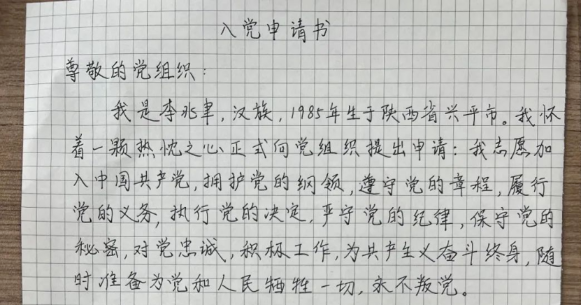 入党申请书
尊敬的党组织：
我是李兆聿，汉族，1985年生于陕西省兴平市。我怀
着一颗热忱之心正式向党组织提出申请：我志愿加
入中国共产党，拥护党的纲领，遵守党的章程，履行
党的义务，执行党的决定，严守党的纪律，保守党的
秘密，对党忠诚，积极工作，为共产主义奋斗终身，随
时准备为党和人民牺牲一切，永不叛党。